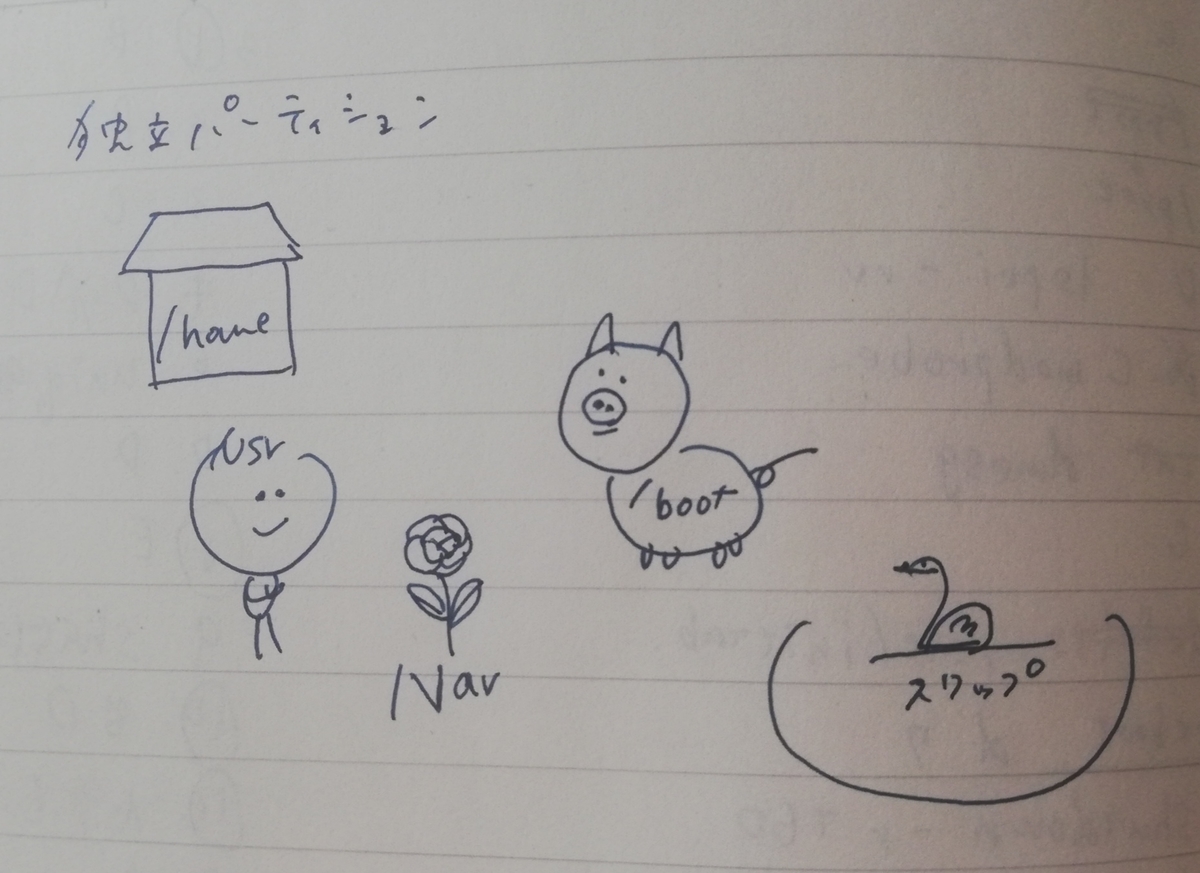 独立パーティション
/home
/usr
/boot
/var
スワップ